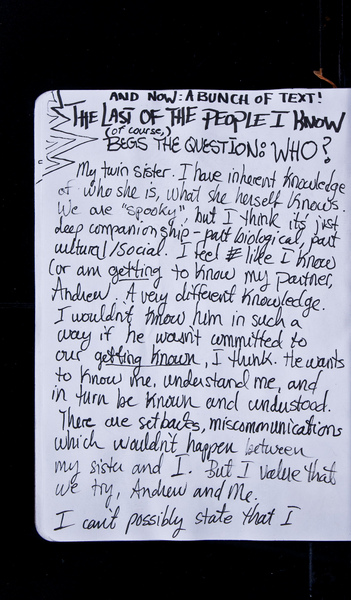 AND NOW: A BUNCH OF TEXT!
THE LAST OF THE PEOPLE I KNOW
(of course,)
BEGS THE QUESTION: WHO?
My twin sister. I have inherent knowledge
of who she is, what she herself knows.
We are "spooky", but I think it's just
deep companionship - part biological, part
cultural/social. I feel like I know
(or am getting to know my partner,
Andrew. A very different knowledge.
I wouldn't know him in such a
way if he wasn't committed to
our getting known, I think. He wants
to know me, understand me, and
in turn be known and understood.
There are setbacks, miscommunications
which wouldn't happen between
my sister and I. But I value that
we try, Andrew and Me.
I can't possibly state that I